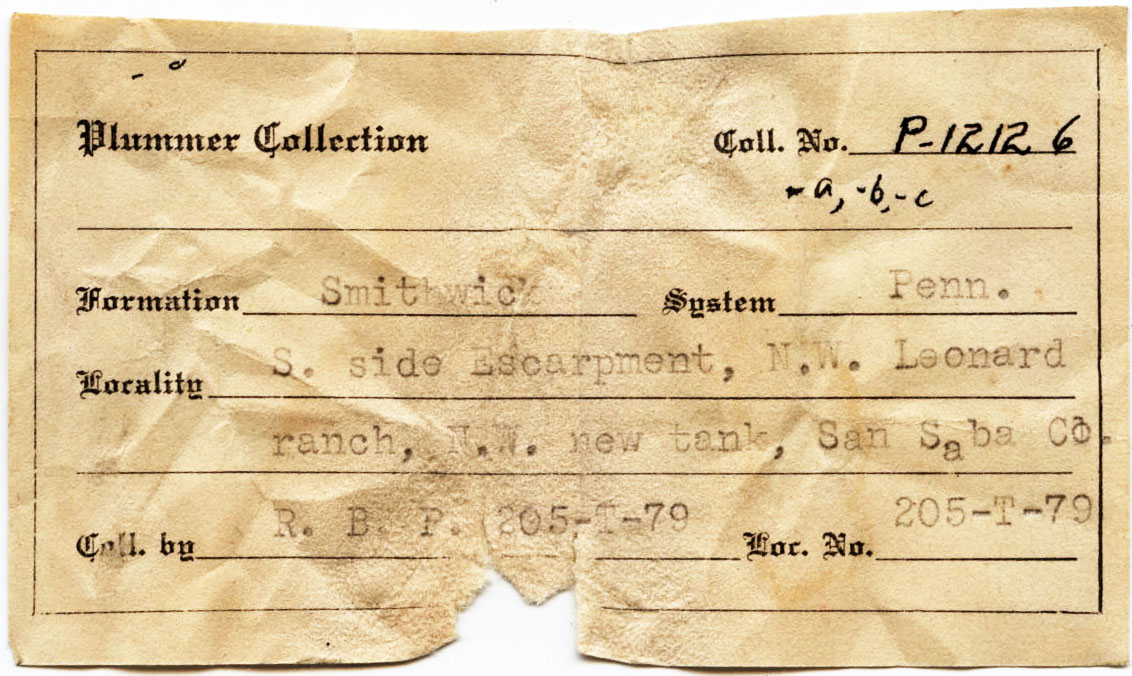 Plummer Collection Coll. No. P-12126
-a, -b, -c
Formation Smithwick System Penn.
Locality S. side Escarpment, N.W. Leonard
ranch, N.W. new tank, San Saba Co.
Coll. by R. B. P. 205-T-79 Loc. No. 205-T-79